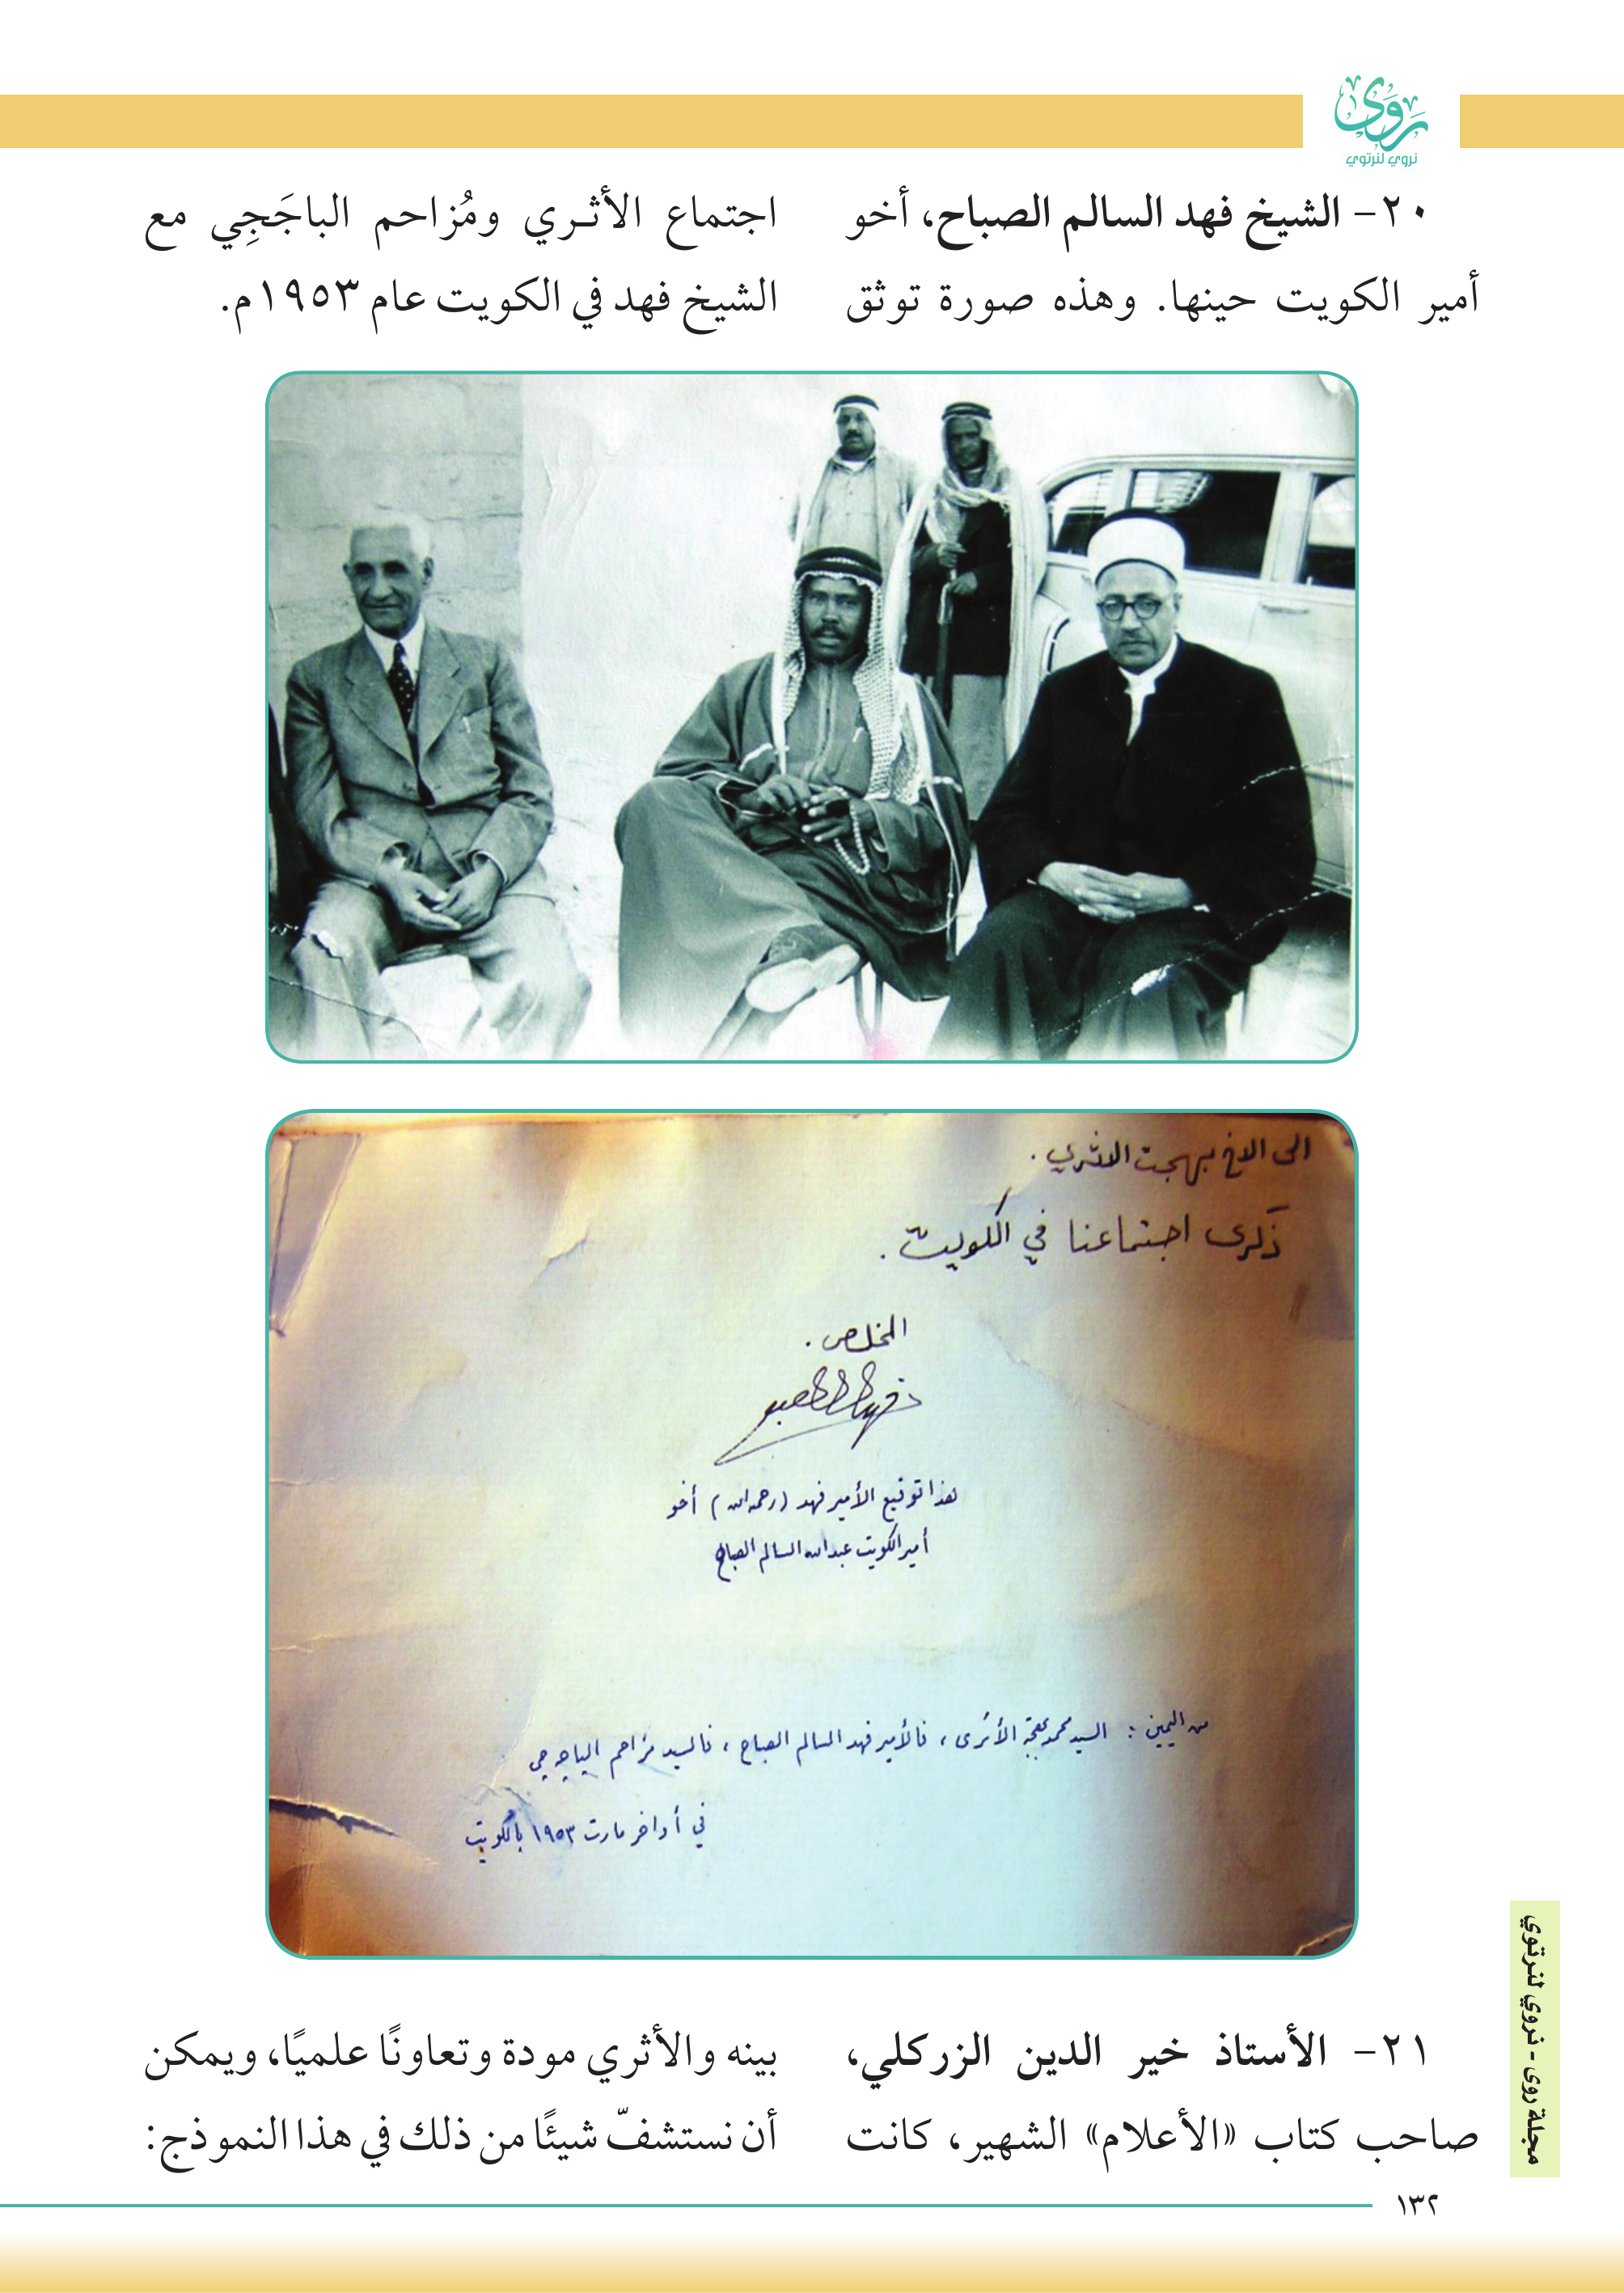 روى
نروي لنرتوي
٢٠- الشيخ فهد السالم الصباح، أخو
أمير الكويت حينها. وهذه صورة توثق
اجتماع الأثري ومُزاحم الباجَجِي مع
الشيخ فهد في الكويت عام ١٩٥٣م.
الى الاخ بهجت الاثري .
ذكرى اجتماعنا في الكويت .
المخلص .
هذا توقيع الأمير فهد (رحمه الله) أخو
أمير الكويت عبدالله السالم الصباح
من اليمين : السيد محمد بهجة الأثرى ، فالأمير فهد السالم الصباح ، فالسيد مزاحم الباجه جي
في أواخر مارت ١٩٥٣ بالكويت
٢١- الأستاذ خير الدين الزركلي،
صاحب كتاب «الأعلام» الشهير، كانت
بينه والأثري مودة وتعاونًا علميًا، ويمكن
أن نستشفّ شيئًا من ذلك في هذا النموذج:
مجلة روى - نروي لنرتوي
١٣٢